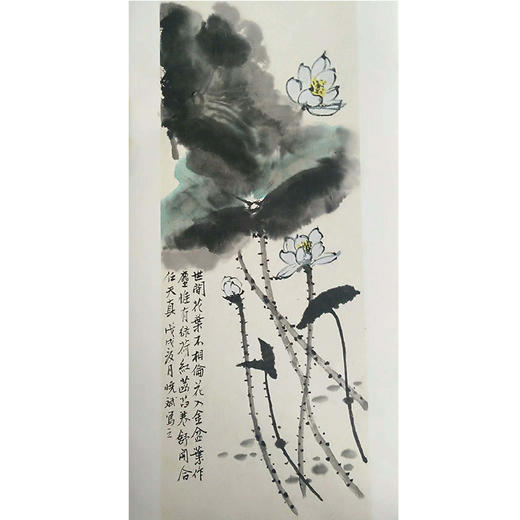 世間花葉不相倫花入金盆葉作
塵惟有綠荷紅菡萏卷舒開合
任天真 戊戌夜月曉斌寫之